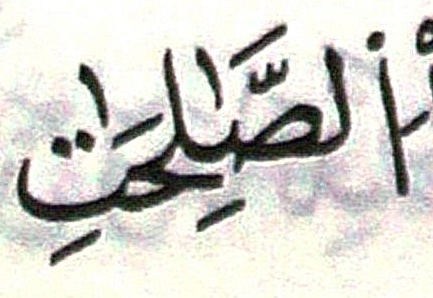 ٱلصَّٰلِحَٰتِ